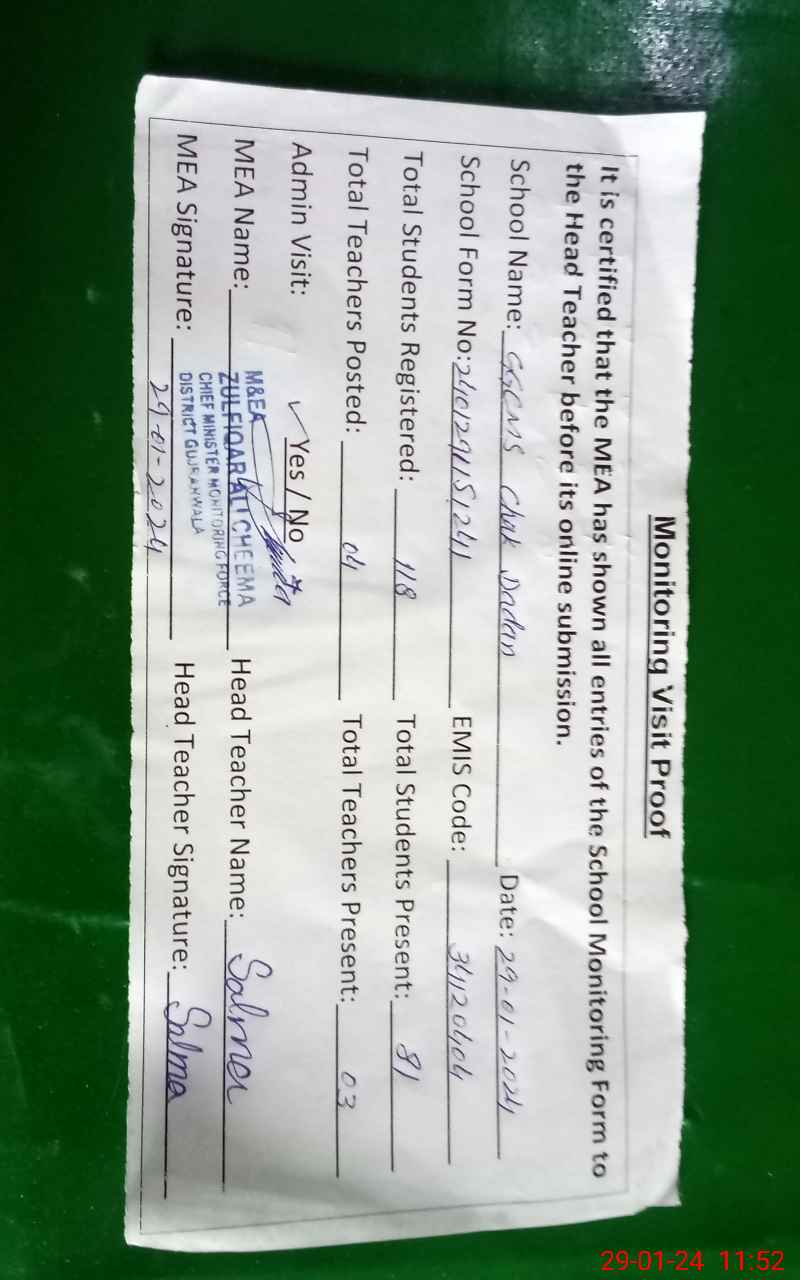 Monitoring Visit Proof
It is certified that the MEA has shown all entries of the School Monitoring Form to
the Head Teacher before its online submission.
School Name: GGCMS Chak Dadan Date: 29-01-2024
School Form No: EMIS Code: 34120404
Total Students Registered: 118 Total Students Present: 81
Total Teachers Posted: 04 Total Teachers Present: 03
Admin Visit: ✓ Yes / No
MEA Name: Head Teacher Name: Salma
M&EA
ZULFIQAR ALI CHEEMA
CHIEF MINISTER MONITORING FORCE
DISTRICT GUJRANWALA
MEA Signature: Head Teacher Signature: Salma
29-01-2024
29-01-24 11:52